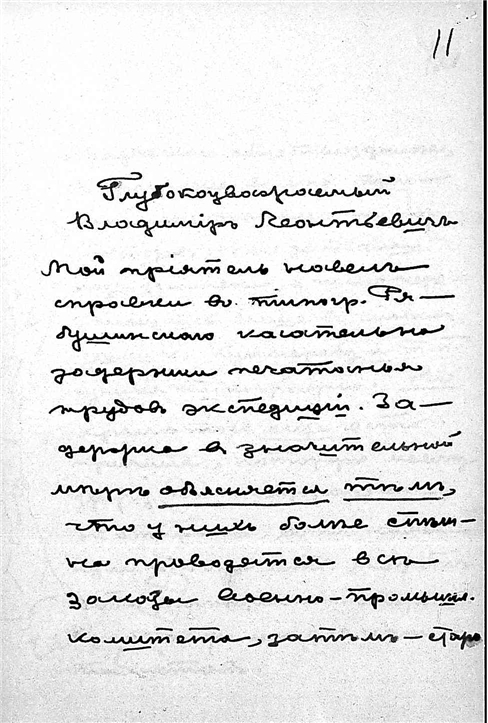 11
Глубокоуважаемый
Владимiръ Леонтьевичъ
Мой прiятель навелъ
справки въ типогр. Ря—
бушинскаго касательно
задержки печатанья
трудовъ экспедицiи. За—
держка въ значительной
мѣрѣ объясняется тѣмъ,
что у нихъ болѣе спѣш—
но проводятся всѣ
заказы Военно-промышл.
комитета, затѣмъ — старо